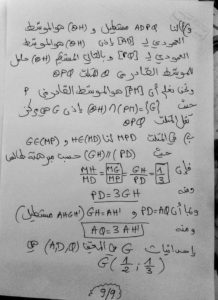 وبما أن ADPQ مستطيل و (⊕H) هو الموسط
العمودي لـ [AD] فإن (⊕H) هو الموسط
العمودي لـ [PQ] وبالتالي المستقيم (⊕H) حامل
للموسط الصادر من ⊕ في المثلث ⊕PQ
ونحن نعلم أن [PM] هو الموسط الصادر من P
حيث {G}=(PM)∩(⊕H) فإن G هو مركز
ثقل المثلث ⊕PQ
في المثلث MPD لنا H∈(MD) و G∈(MP)
حيث (PD)//(GH) حسب مبرهنة طالس
فإن MH/MD = MG/MP = GH/PD = 1/3
ومنه PD=3GH
وبما أن PD=AQ و GH=AH' (AHGH' مستطيل)
ومنه AQ=3AH'
إحداثيات G في المعين (A,D,Q) هي
G(1/2, 1/3)
9/9